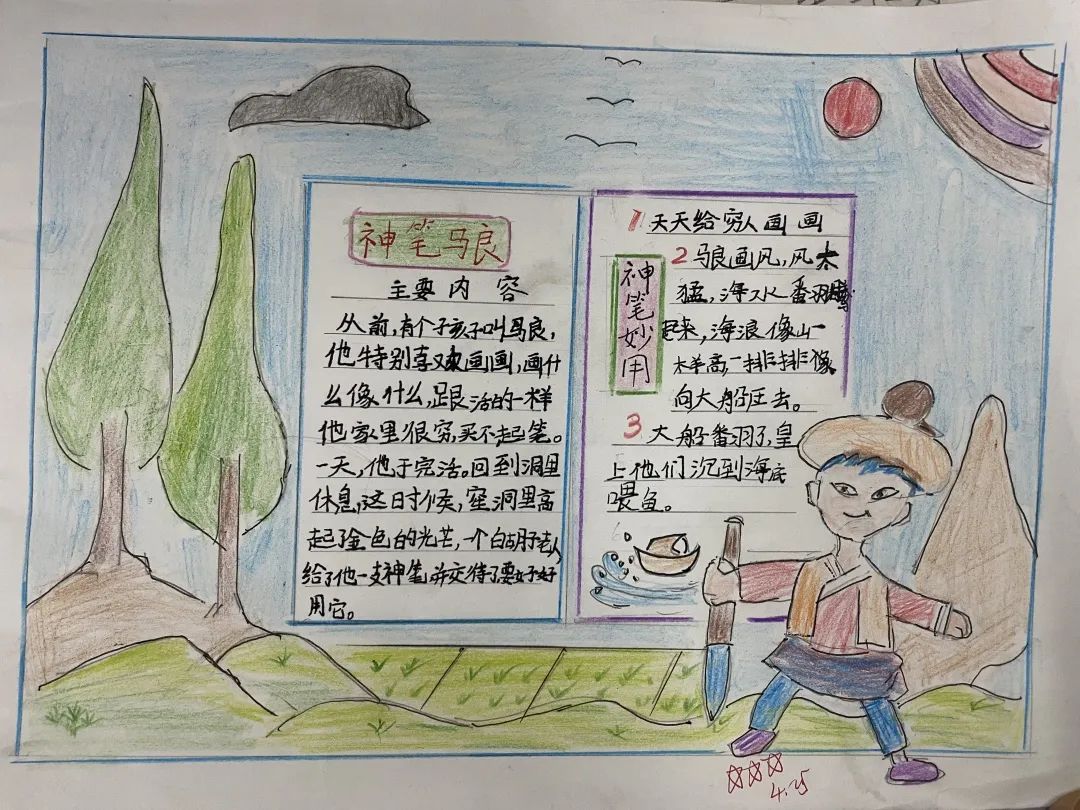 神笔马良
主要内容
从前,有个孩子叫马良,
他特别喜欢画画,画什
么像什么,跟活的一样
他家里很穷,买不起笔。
一天,他干完活。回到洞里
休息,这时候,窑洞里高
起了金色的光芒,一个白胡子老人
给了他一支神笔,并交待了要好好
用它。
神笔妙用
1 天天给穷人画画
2 马良画风,风太
猛,海水翻腾
起来,海浪像山一
样高,一排排像
向大船压去。
3 大船翻了,皇
上他们沉到海底
喂鱼。
4.25